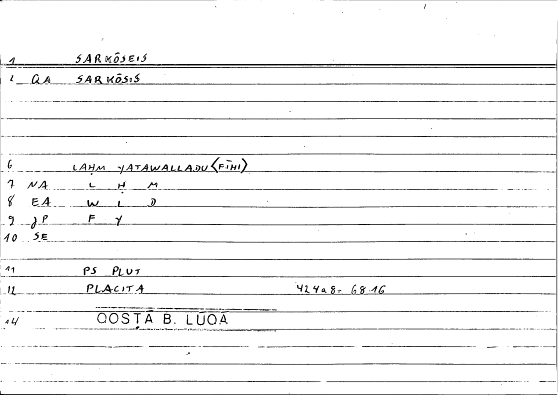 1 SARKŌSEIS
2 QA SARKŌSIS
6 LAḤM YATAWALLADU <FĪHI>
7 NA L Ḥ M
8 EA W L D
9 JP F Y
10 SE
11 PS PLUT
12 PLACITA 424a8. 68 16
14 QOSṬĀ B. LŪQĀ